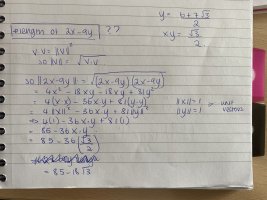 Length of 2x-9y ??
y = 6+7√3
2
xy = √3
2
v·v = ||v||²
so ||v|| = √v·v
so ||2x-9y|| = √(2x-9y)(2x-9y)
= 4x² - 18xy - 18xy + 81y²
= 4(x·x) - 36x·y + 81(y·y)
= 4||x||² - 36x·y + 81||y||²
||x|| = 1
||y|| = 1
unit vectors
⇒ 4(1) - 36x·y + 81(1)
= 85 - 36x·y
= 85 - 36(√3/2)
= 85 - 18√3